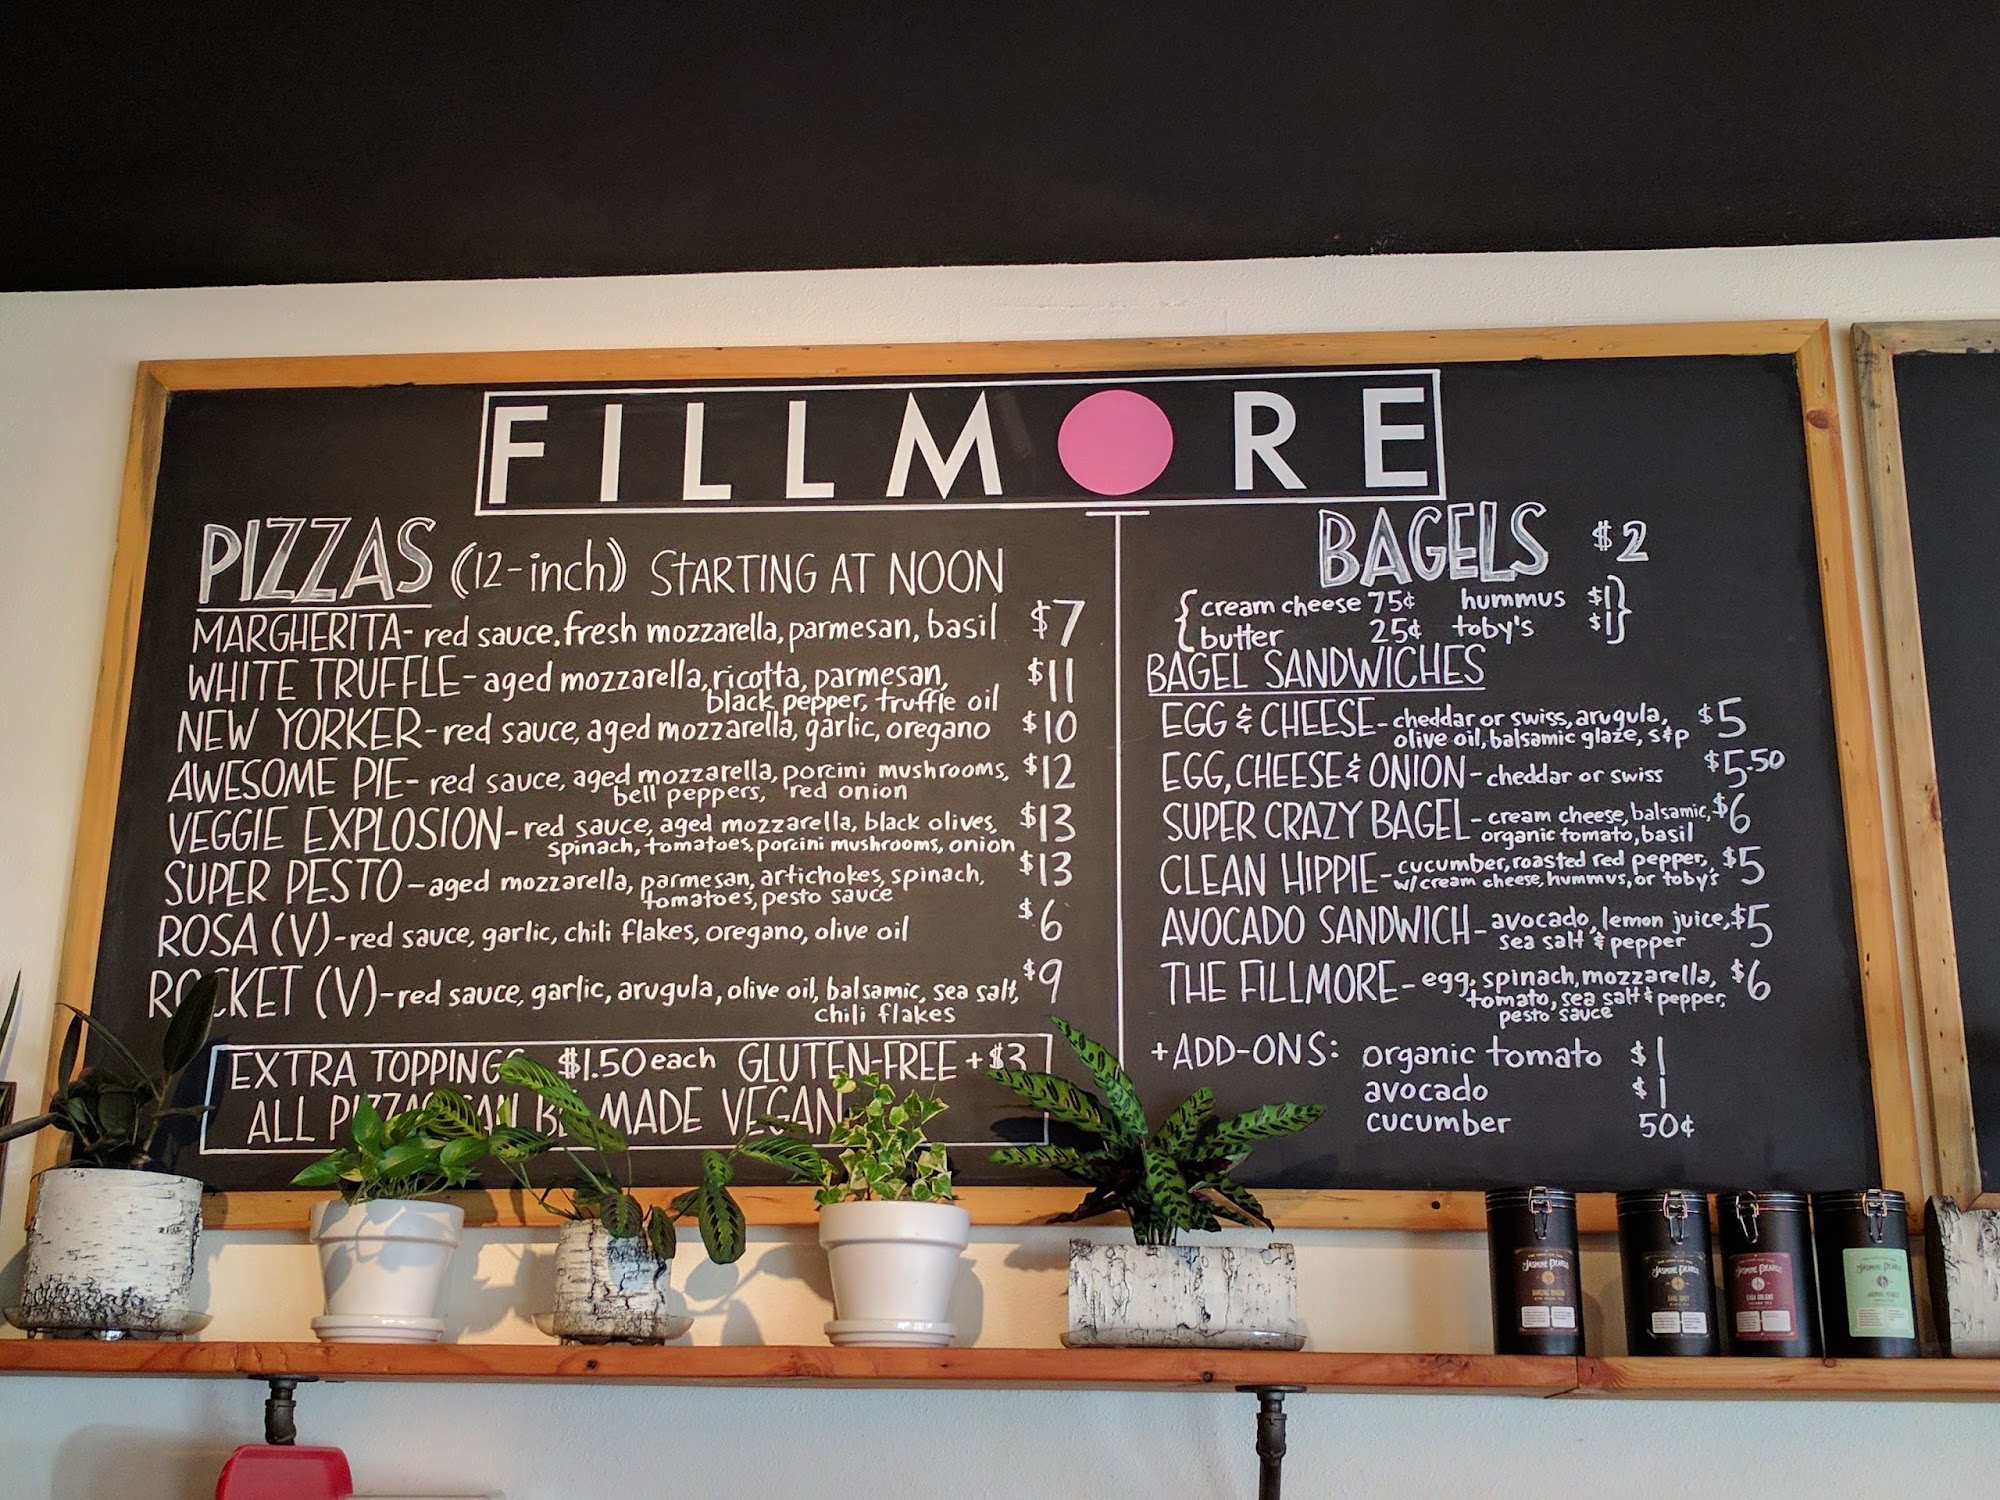 FILLMORE
PIZZAS (12-inch) STARTING AT NOON
MARGHERITA- red sauce, fresh mozzarella, parmesan, basil $7
WHITE TRUFFLE- aged mozzarella, ricotta, parmesan, $11
black pepper, truffle oil
NEW YORKER- red sauce, aged mozzarella, garlic, oregano $10
AWESOME PIE- red sauce, aged mozzarella, porcini mushrooms, $12
bell peppers, red onion
VEGGIE EXPLOSION- red sauce, aged mozzarella, black olives, $13
spinach, tomatoes, porcini mushrooms, onion
SUPER PESTO- aged mozzarella, parmesan, artichokes, spinach, $13
tomatoes, pesto sauce
ROSA (V)- red sauce, garlic, chili flakes, oregano, olive oil $6
ROCKET (V)- red sauce, garlic, arugula, olive oil, balsamic, sea salt, $9
chili flakes
EXTRA TOPPINGS $1.50 each GLUTEN-FREE +$3
ALL PIZZAS CAN BE MADE VEGAN
BAGELS $2
{ cream cheese 75¢ hummus $1 }
{ butter 25¢ toby's $1 }
BAGEL SANDWICHES
EGG & CHEESE- cheddar or swiss, arugula, $5
olive oil, balsamic glaze, s&p
EGG, CHEESE & ONION- cheddar or swiss $5.50
SUPER CRAZY BAGEL- cream cheese, balsamic, $6
organic tomato, basil
CLEAN HIPPIE- cucumber, roasted red pepper, $5
w/ cream cheese, hummus, or toby's
AVOCADO SANDWICH- avocado, lemon juice, $5
sea salt & pepper
THE FILLMORE- egg, spinach, mozzarella, $6
tomato, sea salt & pepper,
pesto sauce
+ADD-ONS: organic tomato $1
avocado $1
cucumber 50¢
JASMINE PEARL
JASMINE PEARL
EARL GREY
JASMINE PEARL
JASMINE PEARL